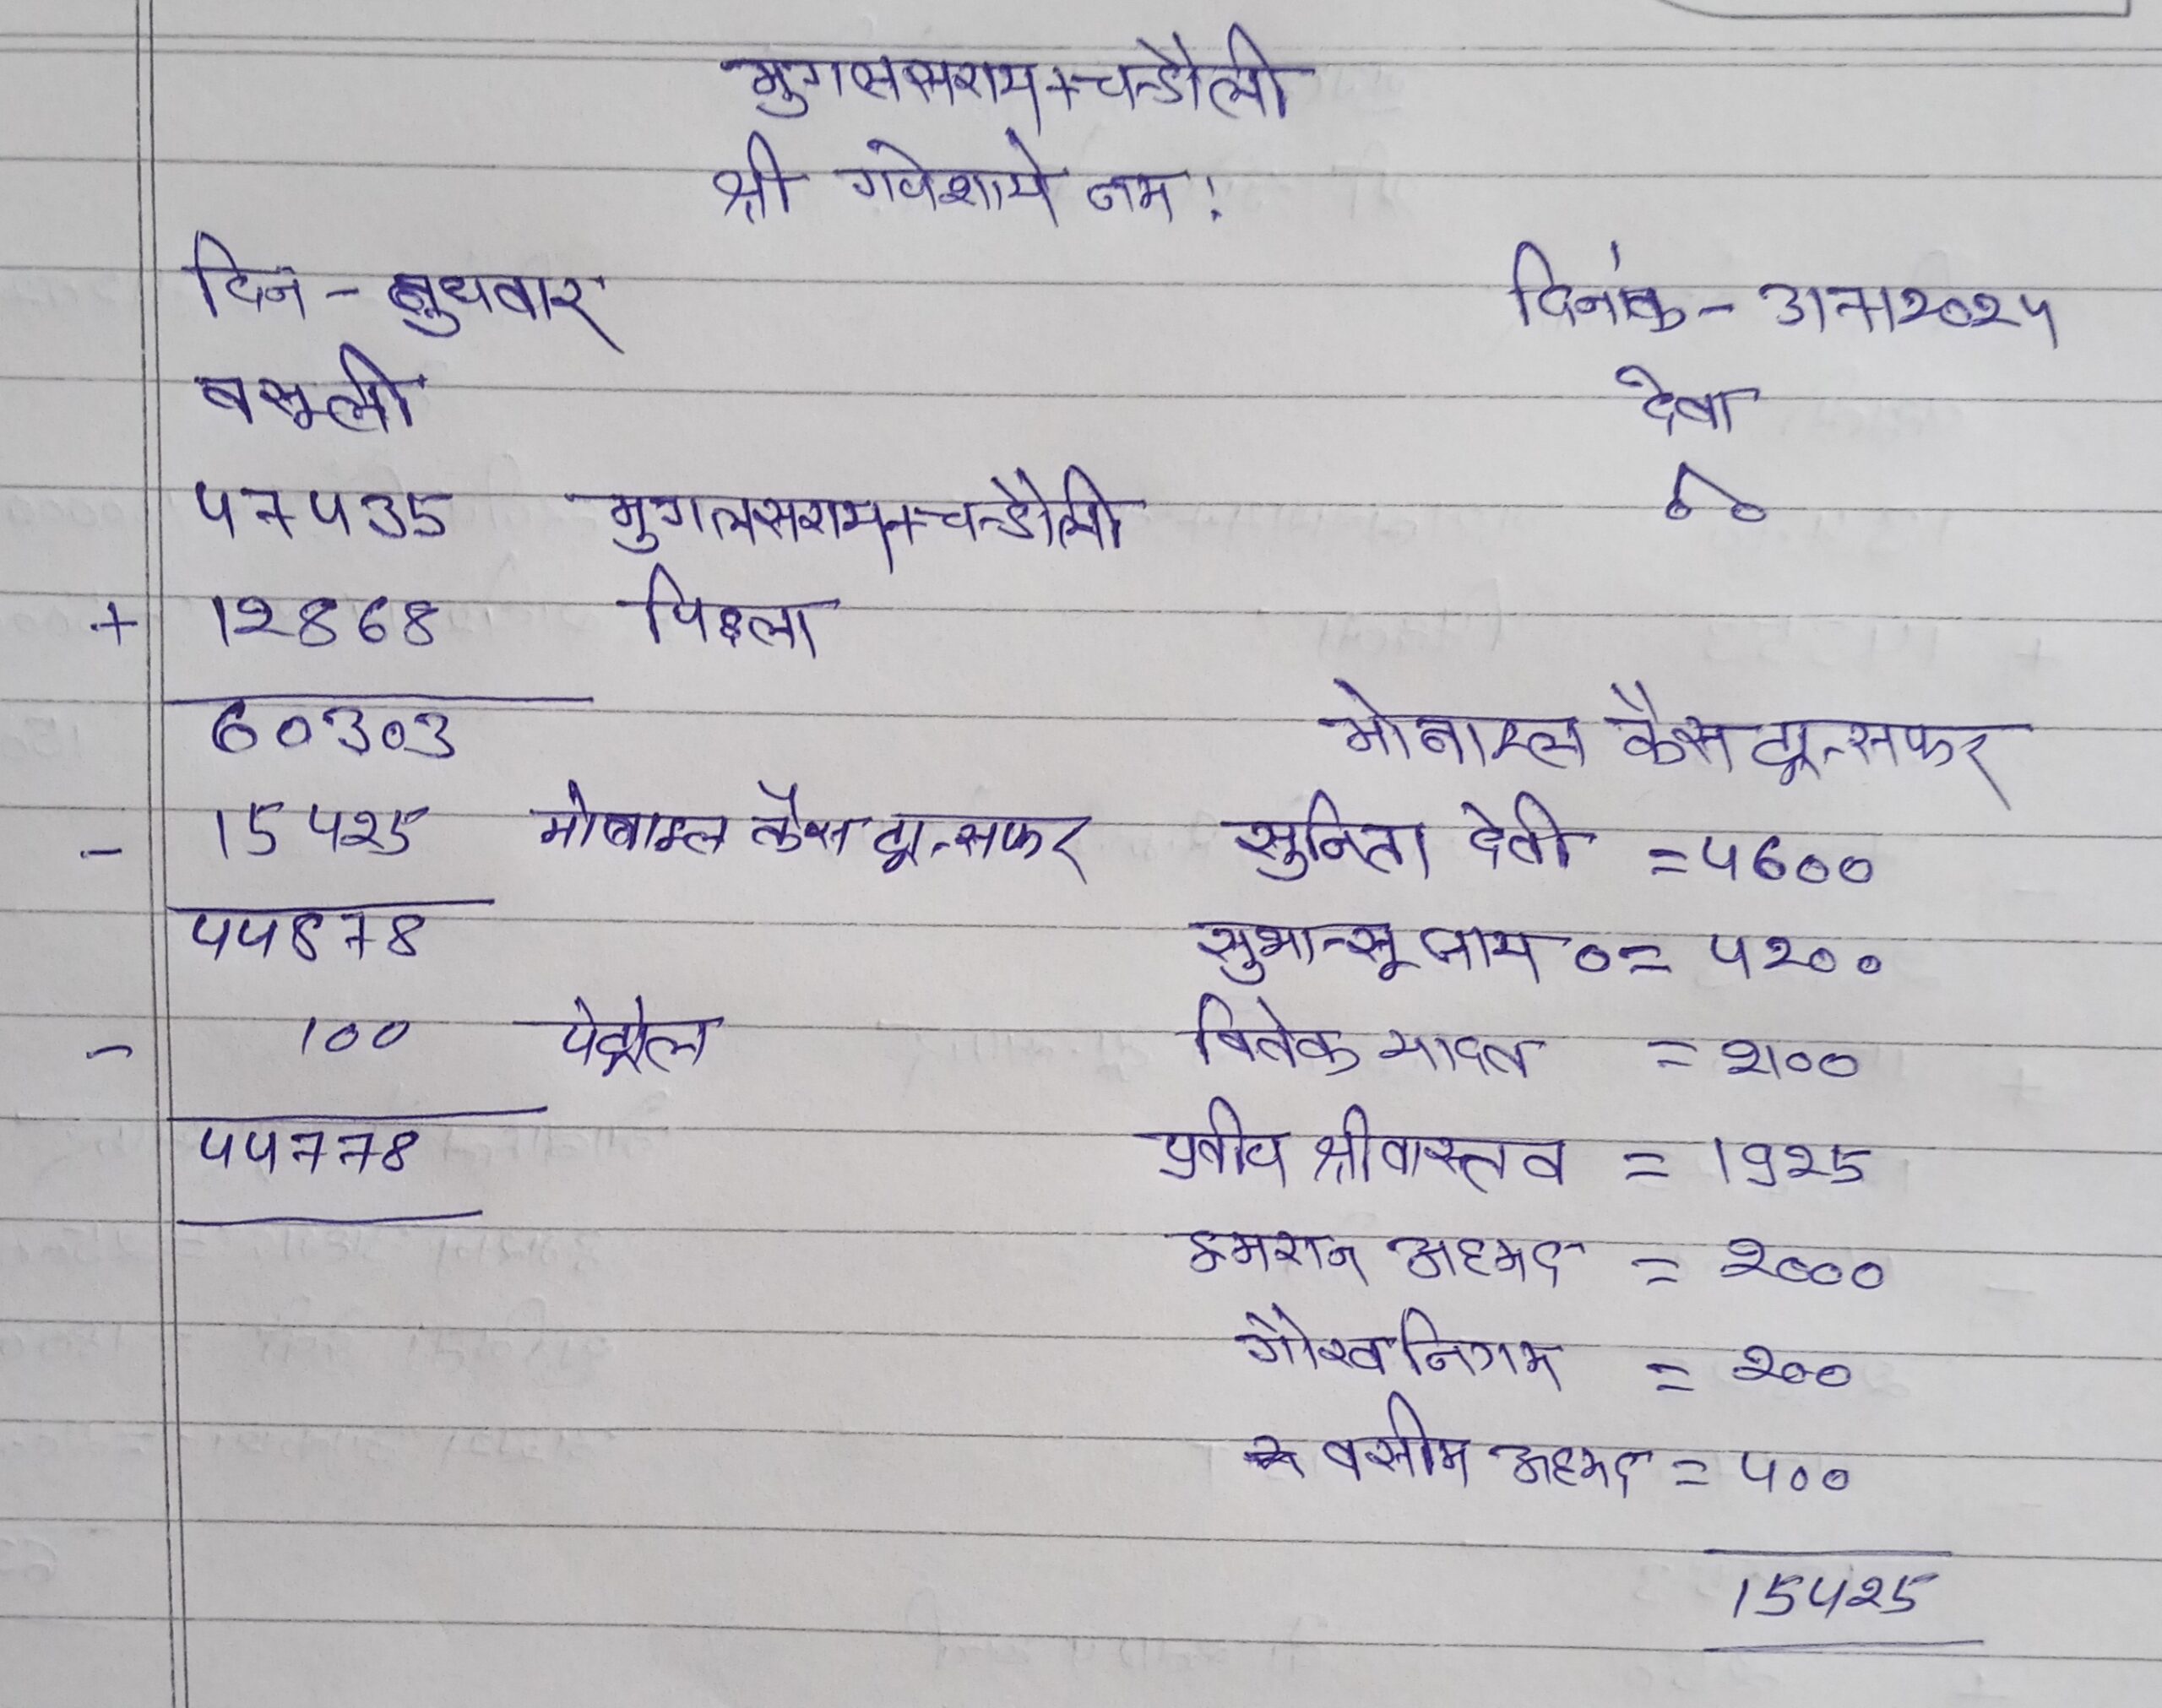 मुगलसराय+चन्डौली
श्री गणेशाये नम:
दिन - बुधवार दिनांक - 31/7/2024
वसूली देवा
47435 मुगलसराय+चन्डौली 00
+ 12868 पिछला
60303 मोबाइल कैस ट्रान्सफर
- 15425 मोबाइल कैस ट्रान्सफर सुनिता देवी = 4600
44878 सुभान्सू जाय 0 = 4200
- 100 पेट्रोल विवेक यादव = 2100
44778 प्रदीप श्रीवास्तव = 1925
इमरान अहमद = 2000
गौरव निगम = 200
वसीम अहमद = 400
15425